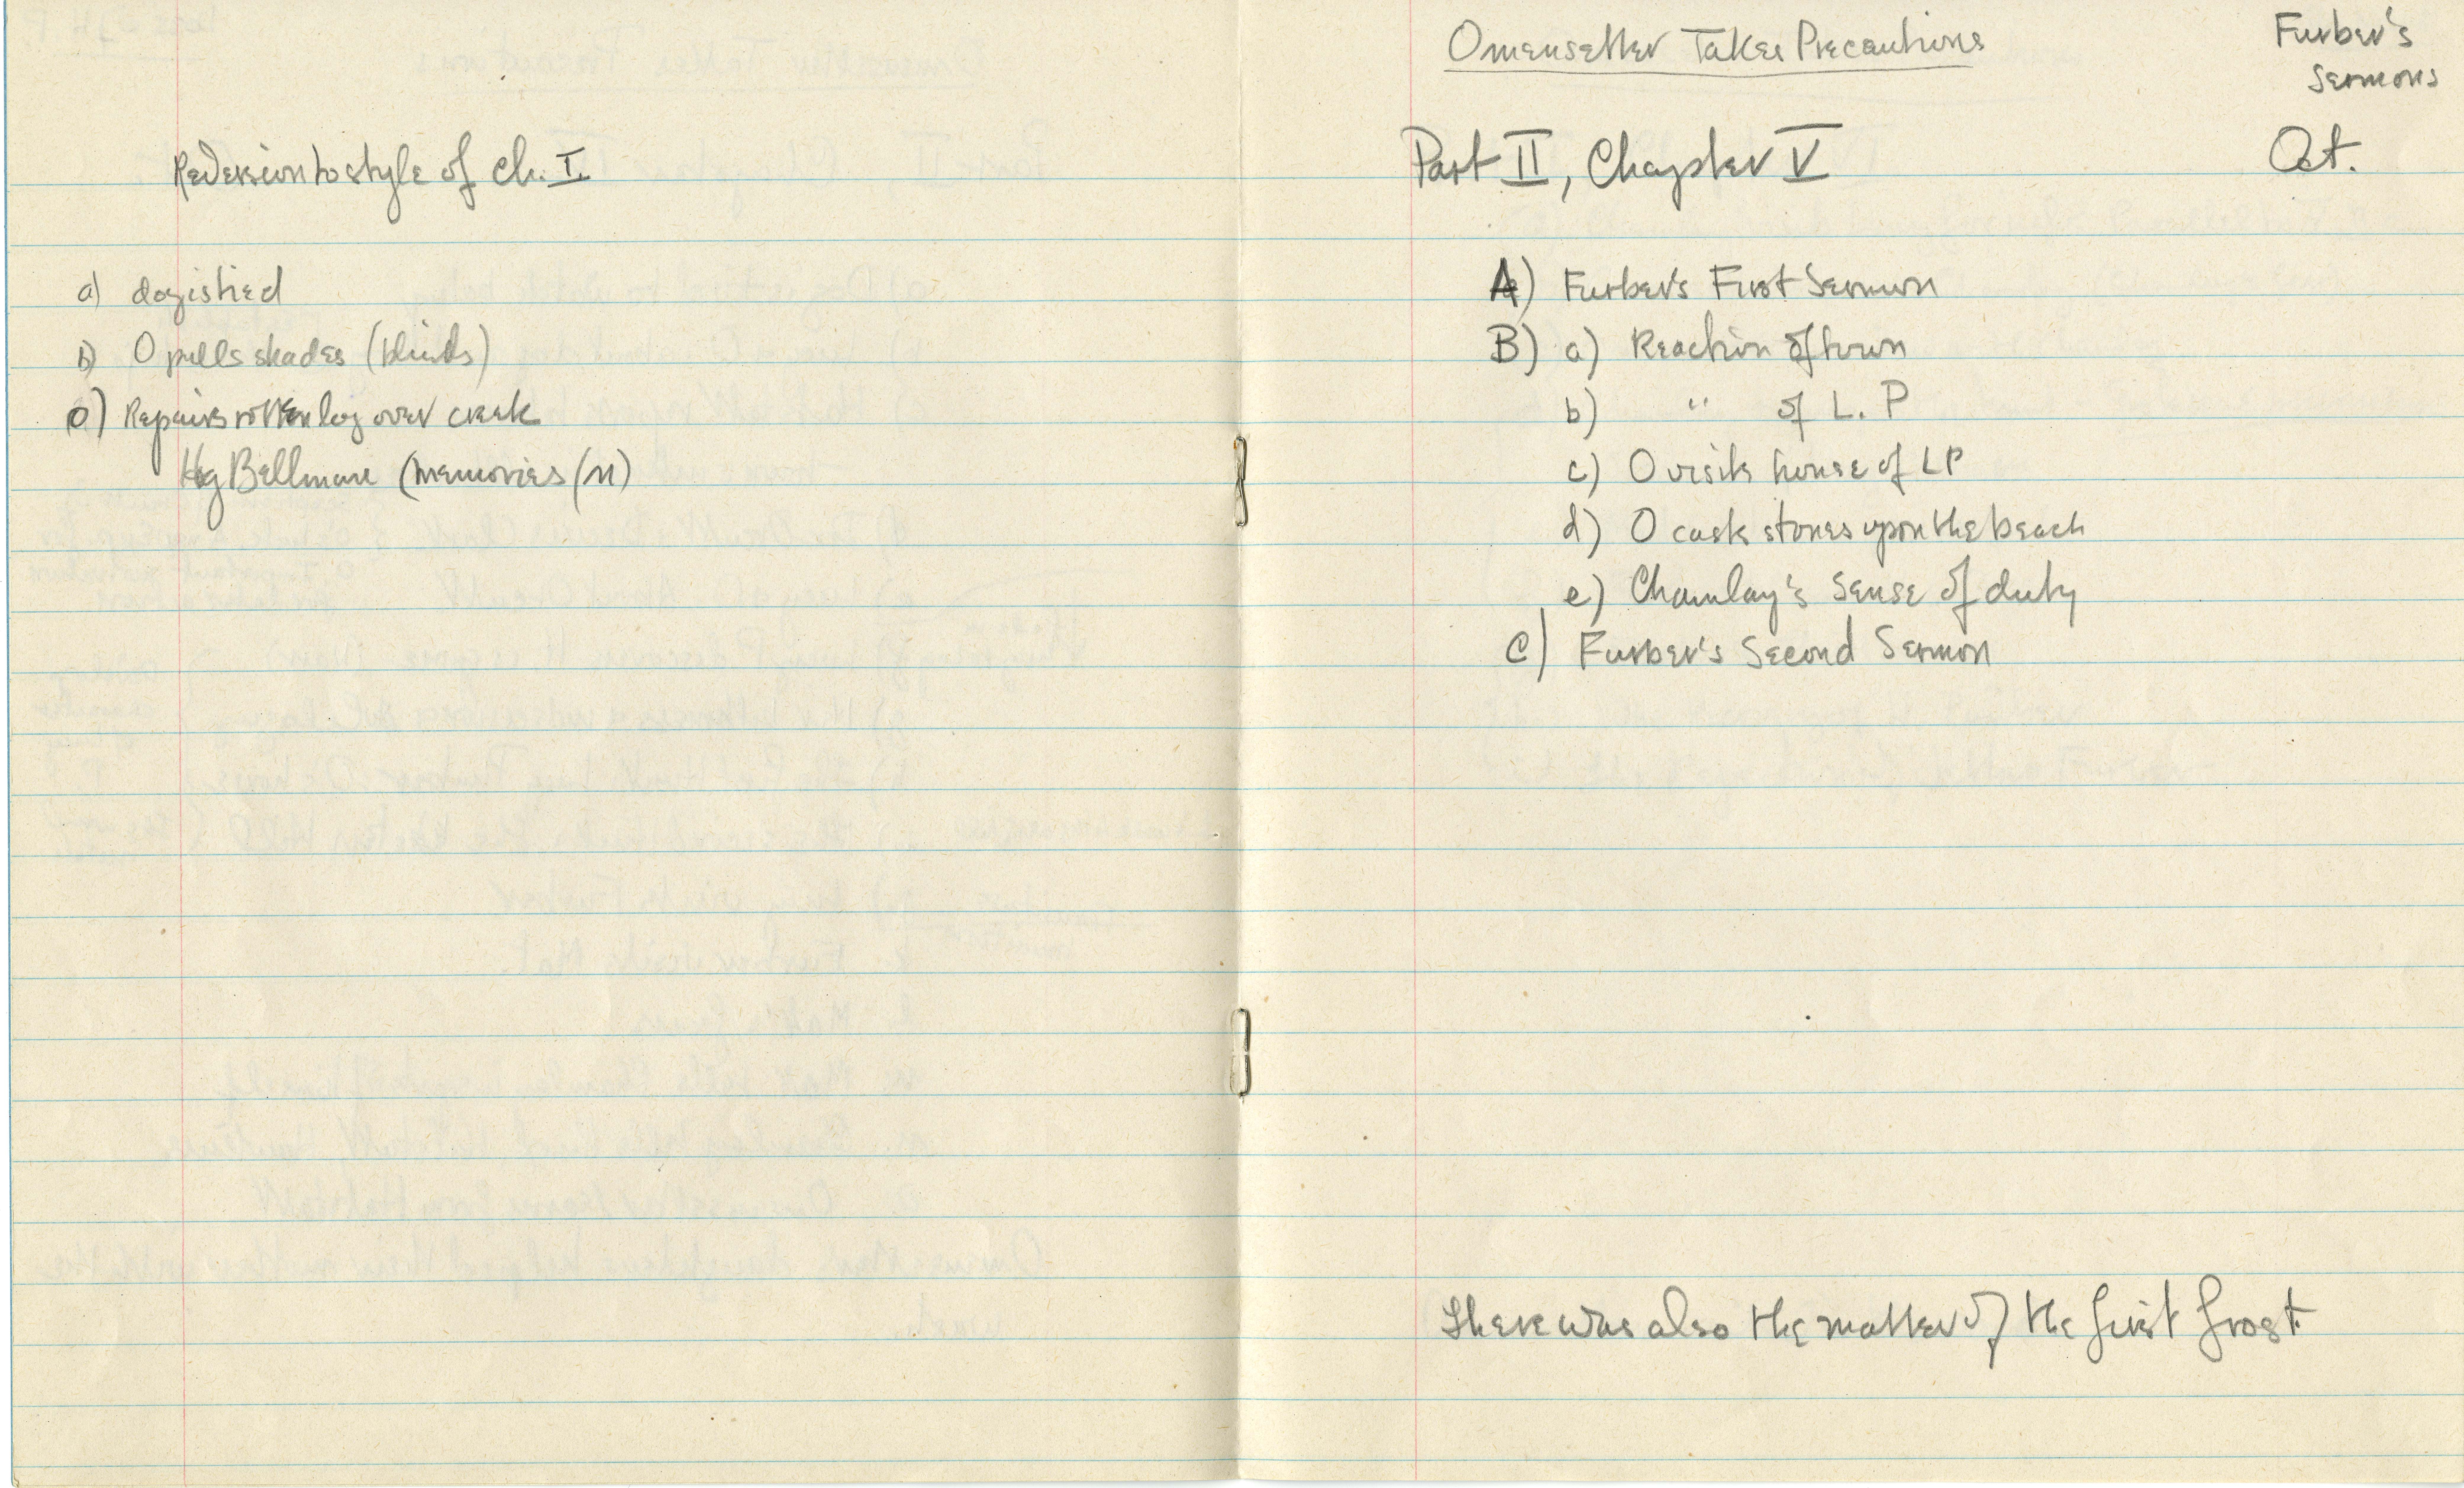 Reversion to style of Ch. I
a) dog is tied
b) O pulls shades (blinds)
c) Repairs rotten log over creek
Hog Bellman (memories
Omensetter Takes Precautions
Furber's
Sermons
Part II, Chapter V
Oct.
A) Furber's First Sermon
B) a) Reaction of town
b) " of L. P
c) O visits house of LP
d) O casts stones upon the beach
e) Chamlay's sense of duty
C) Furber's Second Sermon
There was also the matter of the first frost